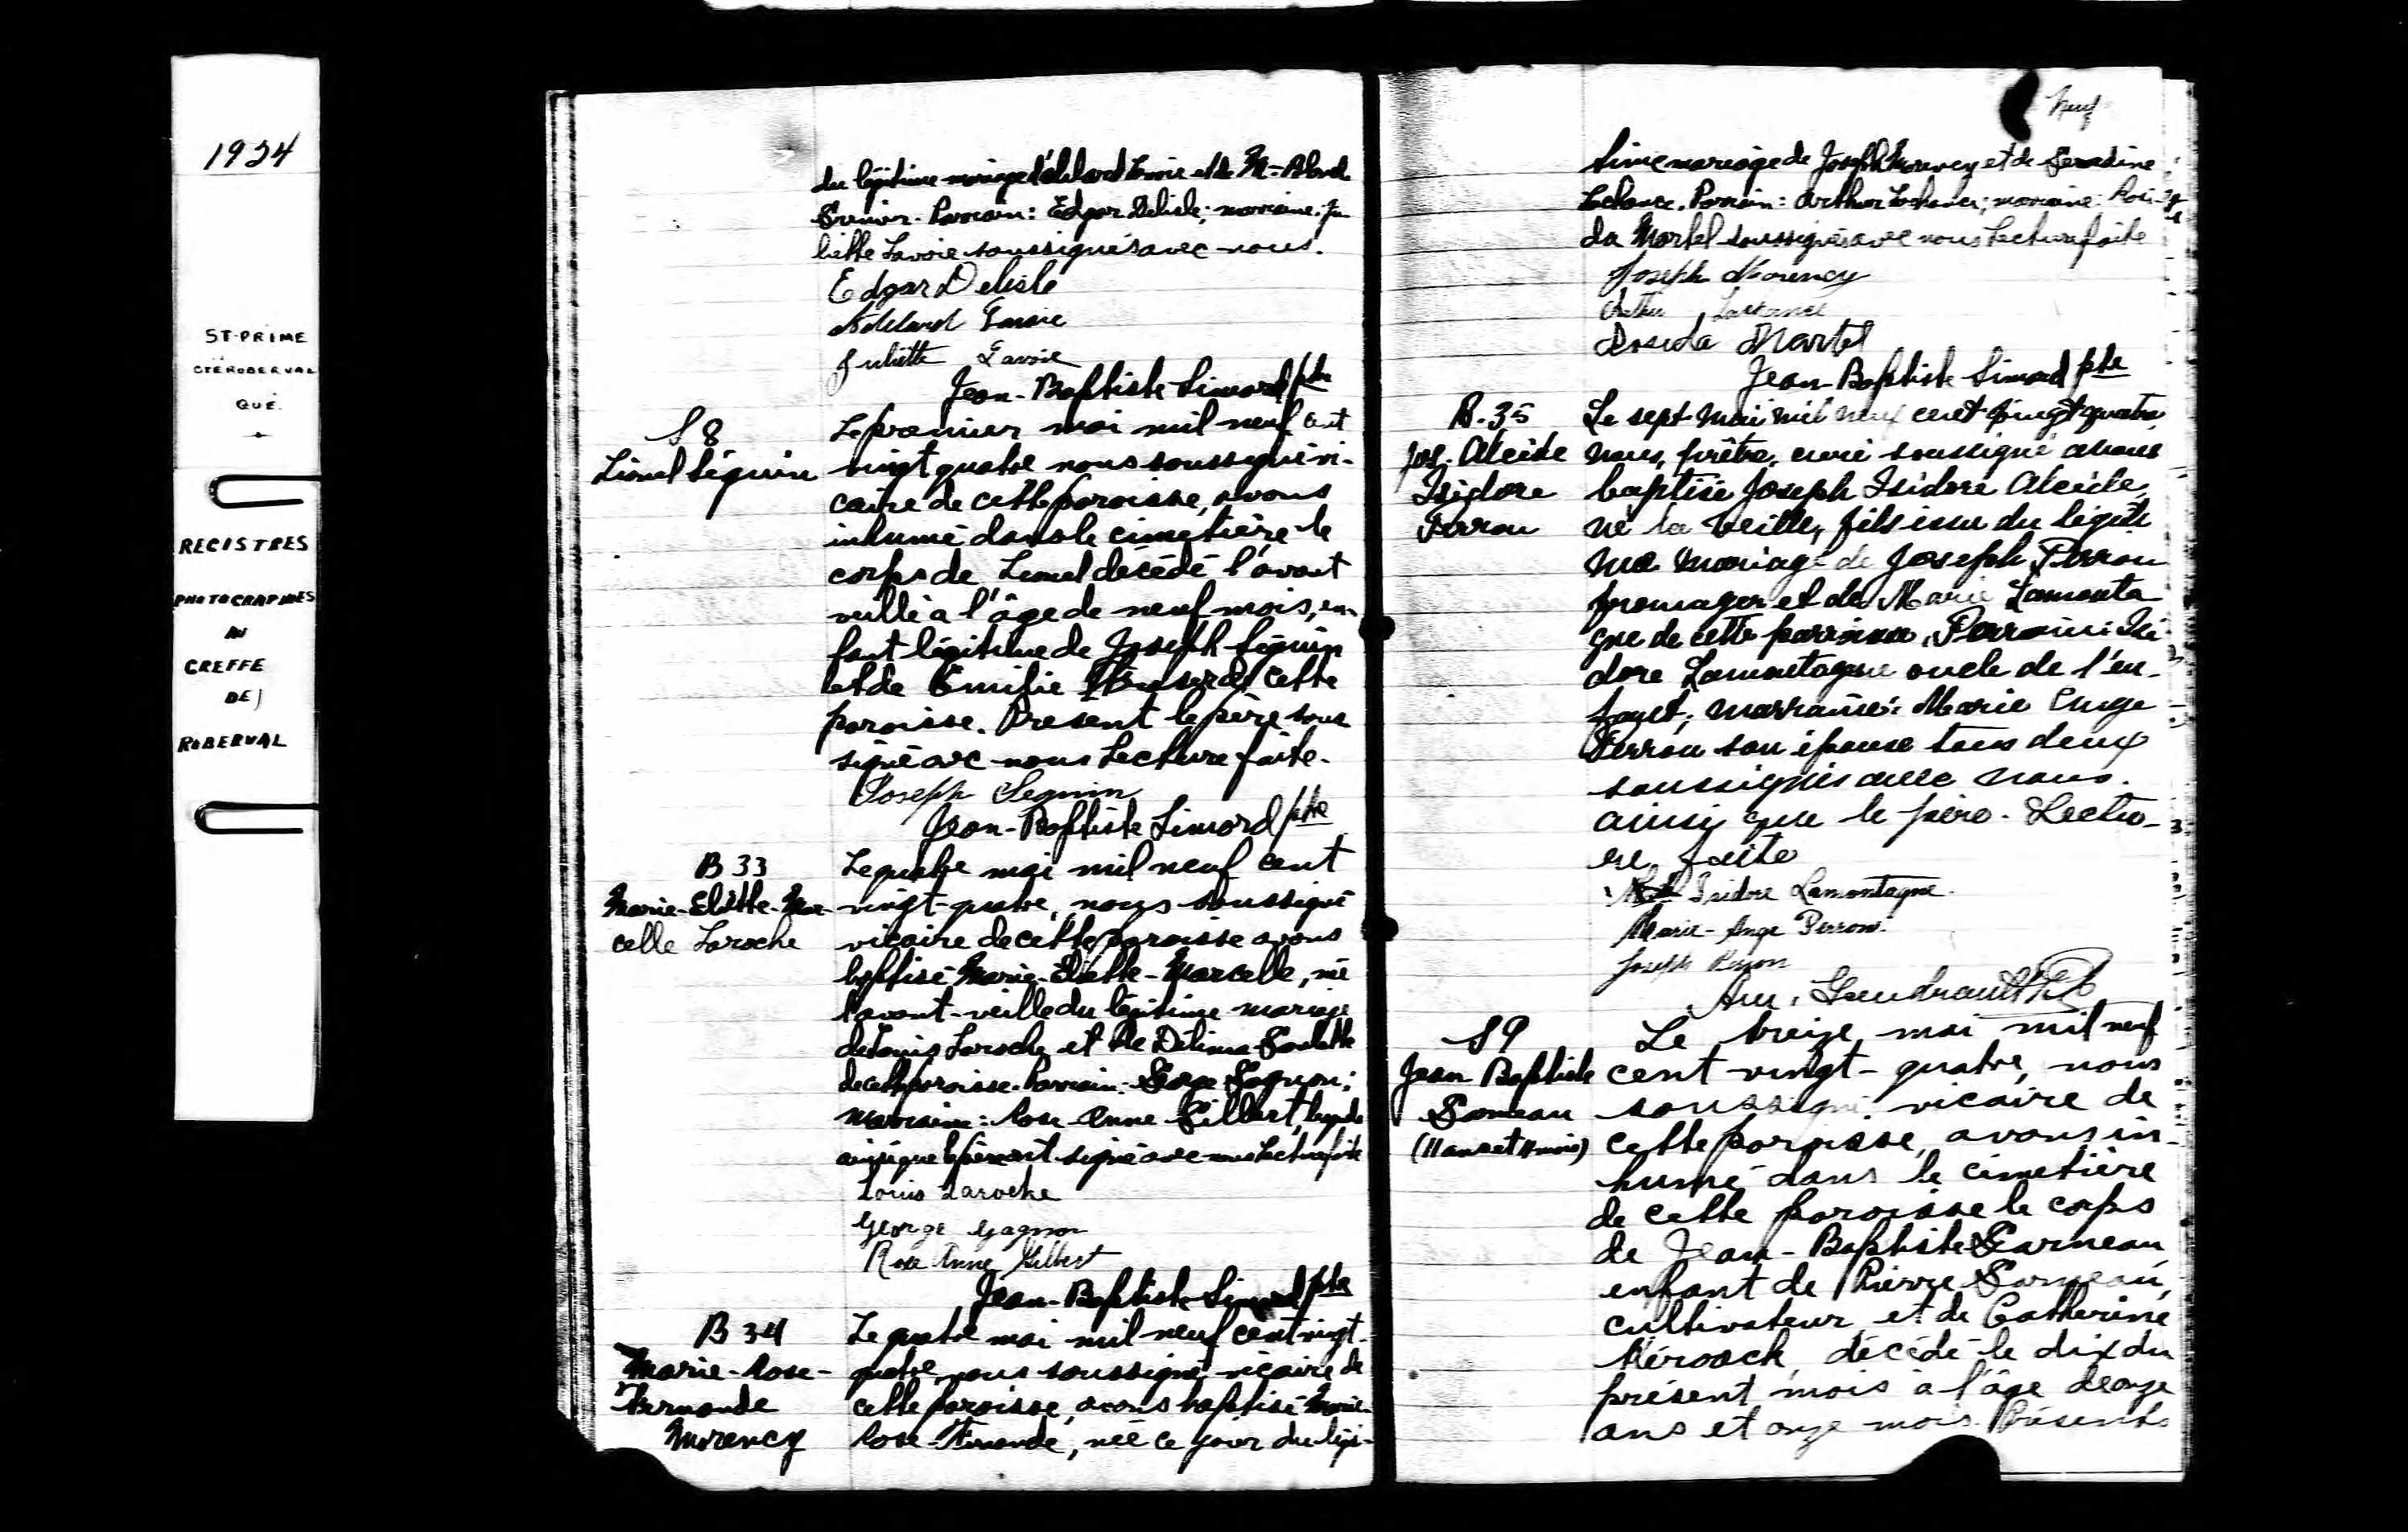 1924
ST-PRIME
CTÉ ROBERVAL
QUÉ.
REGISTRES
PHOTOGRAPHIÉS
AU
GREFFE
DE
ROBERVAL
du légitime mariage d'Adélard Lavoie et de M-
Parrain: Edgar Delisle; marraine: Ju
liette Lavoie soussignés avec nous.
Edgar Delisle
Adélard Lavoie
Juliette Lavoie
Jean-Baptiste Simard ptre
S 8
Lionel Séguin
Le premier mai mil neuf cent
vingt quatre nous soussigné vi-
caire de cette paroisse, avons
inhumé dans le cimetière le
corps de Lionel décédé l'avant
veille à l'âge de neuf mois, en-
fant légitime de Joseph Séguin
et de de cette
paroisse. Présent le père sous
signé avec nous Lecture faite.
Joseph Seguin
Jean-Baptiste Simard ptre
B 33
Marie-Eliette-Mar
celle Laroche
Le quatre mai mil neuf cent
vingt-quatre, nous soussigné
vicaire de cette paroisse avons
baptisé Marie-Eliette-Marcelle, née
l'avant-veille du légitime mariage
de Louis Laroche et de Délima
de cette paroisse. Parrain: George Gagnon;
marraine: Rose Anne Gilbert, lesquels
ainsi que le père ont signé avec nous Lecture faite
Louis Laroche
George Gagnon
Rose Anne Gilbert
Jean-Baptiste Simard ptre
B 34
Marie-Rose-
Fernande
Morency
Le quatre mai mil neuf cent vingt-
quatre, nous soussigné vicaire de
cette paroisse, avons baptisé Marie-
Rose-Fernande, née ce jour du légi-
Neuf
time mariage de Joseph Morency et de
Lachance. Parrain: Arthur Lachance; marraine: Rosi-
da Martel soussignés avec nous Lecture faite
Joseph Morency
Arthur Lachance
Roseda Martel
Jean-Baptiste Simard ptre
B. 35
Jos. Alcide
Isidore
Perron
Le sept mai mil neuf cent vingt quatre
nous, prêtre, curé soussigné avons
baptisé Joseph Isidore Alcide,
né la veille, fils issu du légiti
me mariage de Joseph Perron
fromager et de Marie Lamonta
gne de cette paroisse. Parrain: Isi
dore Lamontagne oncle de l'en-
fant; marraine: Marie Ange
Perron son épouse tous deux
soussignés avec nous.
ainsi que le père. Lectu-
re faite
Isidore Lamontagne.
Marie-Ange Perron.
Joseph Perron
S 9
Jean Baptiste
Garneau
(11 ans et 11 mois)
Le treize mai mil neuf
cent vingt-quatre, nous
soussigné, vicaire de
cette paroisse, avons in-
humé dans le cimetière
de cette paroisse le corps
de Jean-Baptiste Garneau,
enfant de Pierre Garneau,
cultivateur et de Catherine
Kéroack, décédé le dix du
présent mois à l'âge de onze
ans et onze mois. Présents